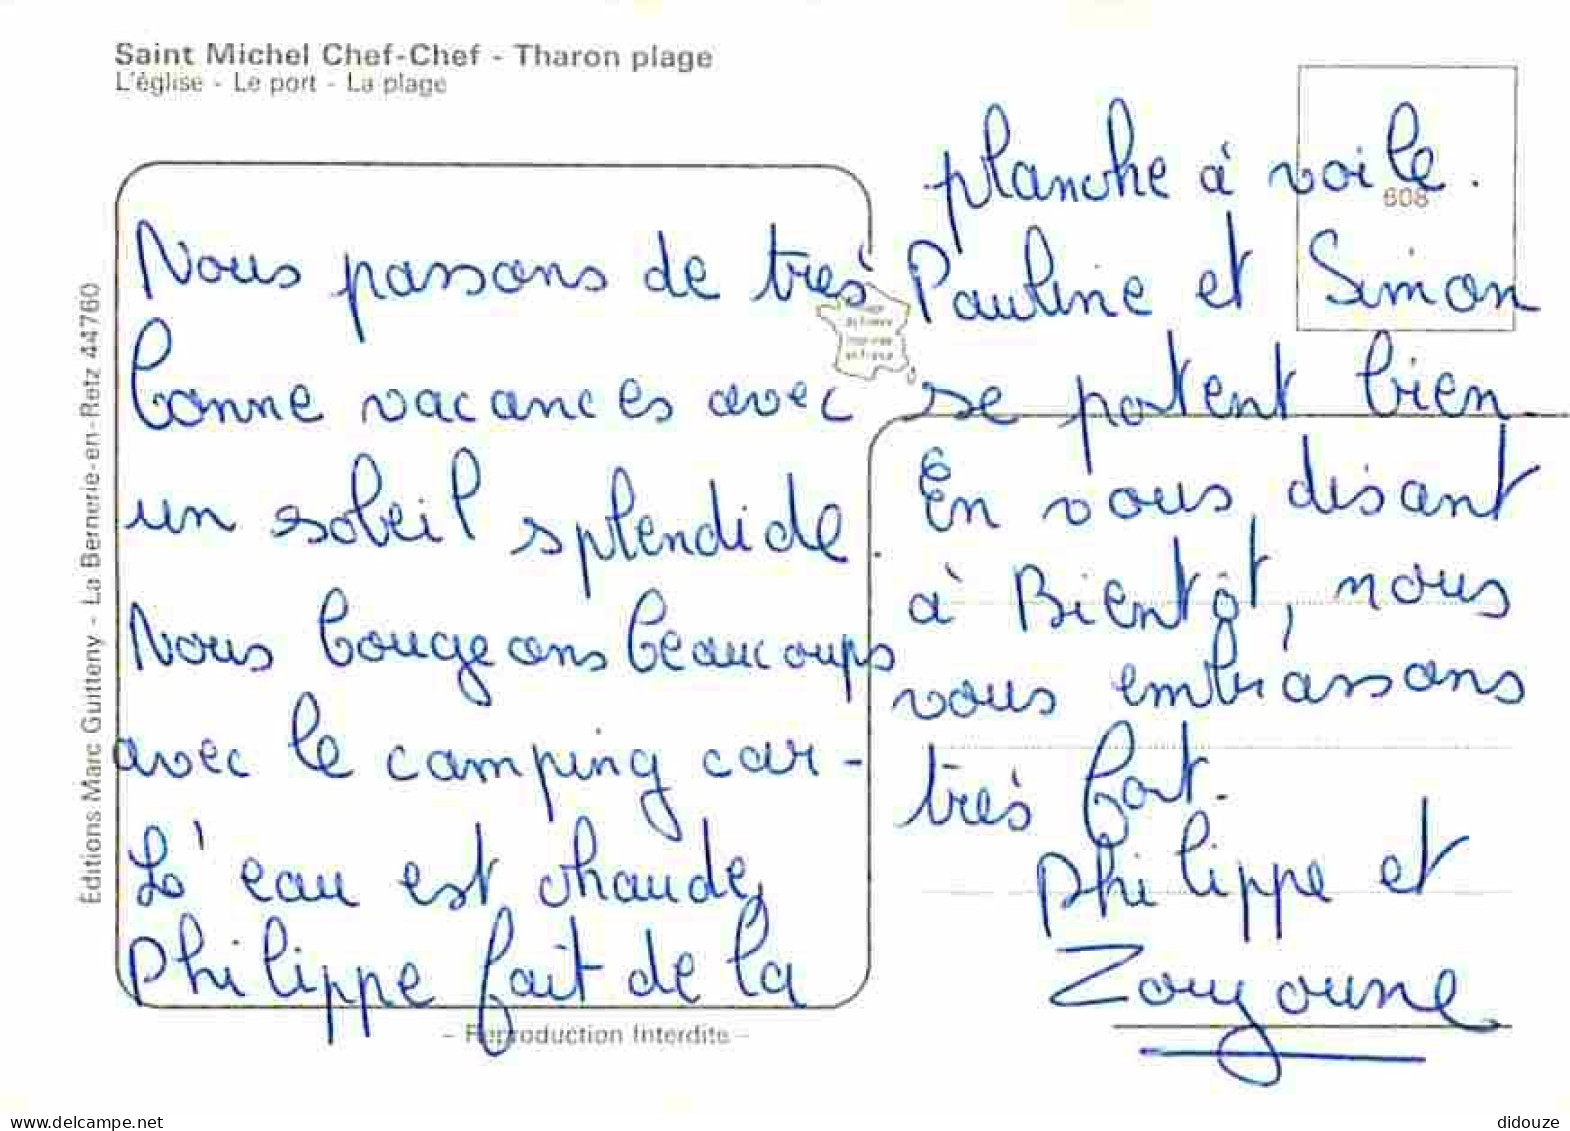 Saint Michel Chef-Chef - Tharon plage
L'église - Le port - La plage
Éditions Marc Guitteny - La Bernerie-en-Retz 44760
Nous passons de très
bonne vacances avec
un soleil splendide.
Nous bougeons beaucoups
avec le camping car-
L'eau est chaude,
Philippe fait de la
planche à voile.
608
Pauline et Simon
se portent bien.
En vous disant
à Bientôt, nous
vous embrassons
très fort.
Philippe et
Zouzoune
de France
en France
- Reproduction Interdite -
www.delcampe.net
didouze